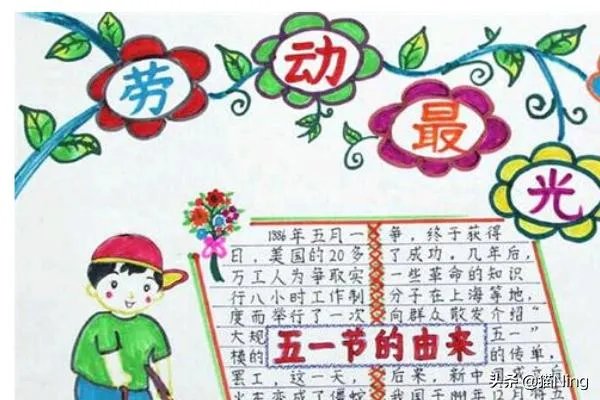 劳动最光
1886年五月一
日，美国的20多
万工人为争取实
行八小时工作制
度而举行了一次
大规
模的
罢工，这一天，
火车变成了僵蛇
五一节的由来
争，终于获得
了成功。几年后，
一些革命的知识
分子在上海等地，
向群众散发介绍“
五一”
的传单，
后果，新中
我国于 年12月将五
头条 @猫Ning